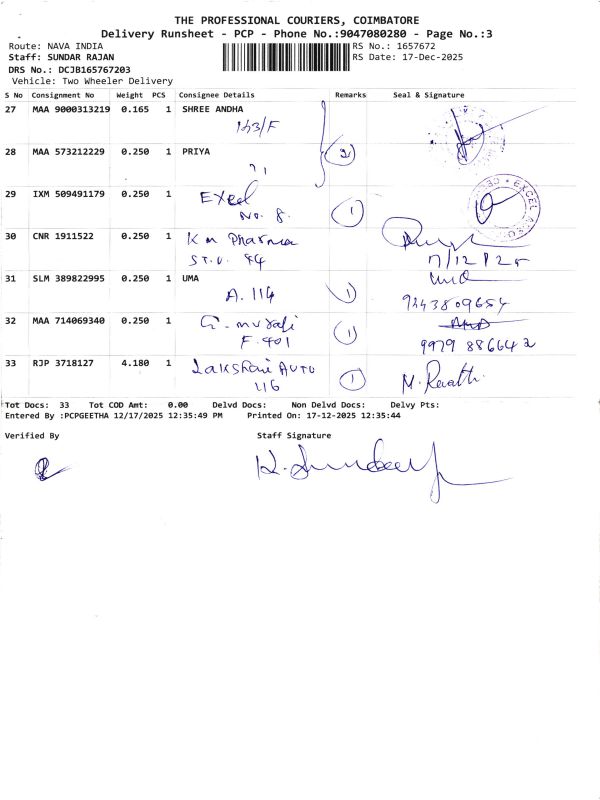 THE PROFESSIONAL COURIERS, COIMBATORE
Delivery Runsheet - PCP - Phone No.:9047080280 - Page No.:3
Route: NAVA INDIA RS No.: 1657672
Staff: SUNDAR RAJAN RS Date: 17-Dec-2025
DRS No.: DCJB165767203
Vehicle: Two Wheeler Delivery
S No Consignment No Weight PCS Consignee Details Remarks Seal & Signature
27 MAA 9000313219 0.165 1 SHREE ANDHA
143/F
28 MAA 573212229 0.250 1 PRIYA 2
71
29 IXM 509491179 0.250 1 Excel 1
No. 8.
EXCEL
30 CNR 1911522 0.250 1 K m Pharma
ST.V. 44 17/12/25
31 SLM 389822995 0.250 1 UMA Uma
A. 114 1 9443809654
32 MAA 714069340 0.250 1 G. murali 1
F. 401 9979 886642
33 RJP 3718127 4.180 1 Lakshmi Auto 1
116
Tot Docs: 33 Tot COD Amt: 0.00 Delvd Docs: Non Delvd Docs: Delvy Pts:
Entered By :PCPGEETHA 12/17/2025 12:35:49 PM Printed On: 17-12-2025 12:35:44
Verified By Staff Signature